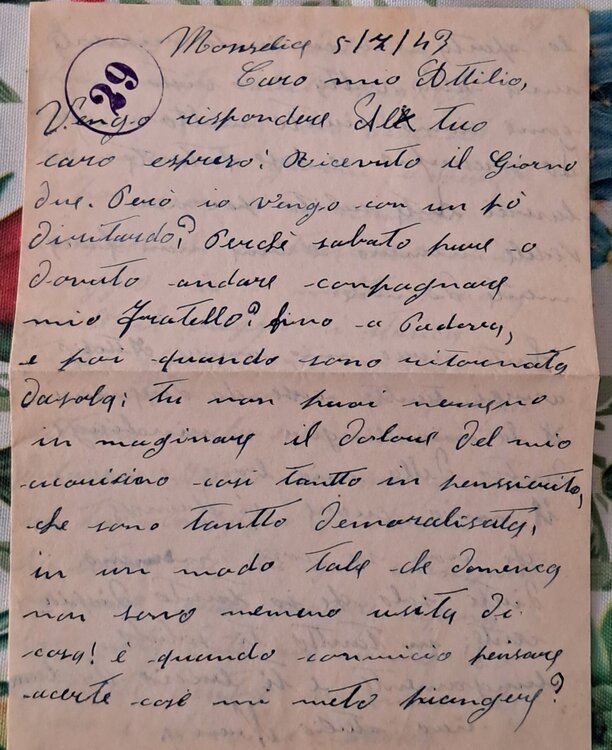 Monselice 5/7/43
29
Caro mio Attilio,
Vengo rispondere Al tuo
caro espreso! Ricevuto il Giorno
due. Però io vengo con un pò
diritardo? Perchè sabato pure o
dovuto andare conpagnare
mio fratello? fino a Padova,
e poi quando sono ritornata
dasola; tu non puoi nemeno
in maginare il dolore del mio
così tantto in penssierita,
che sono tantto demoralisata,
in un modo tale che domenca
non sono nemeno usita di
casa! è quando comincio pensare
acerte cose mi meto piangere?